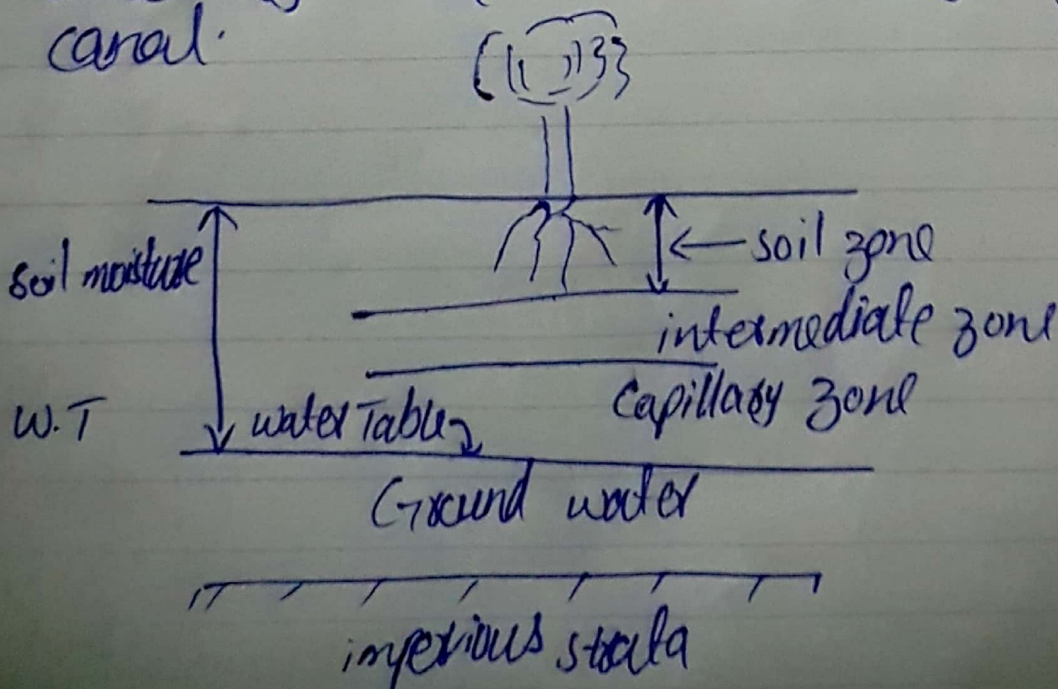 canal.
soil moisture
soil zone
intermediate zone
Capillary zone
W.T
water Table
Ground water
imperious strata